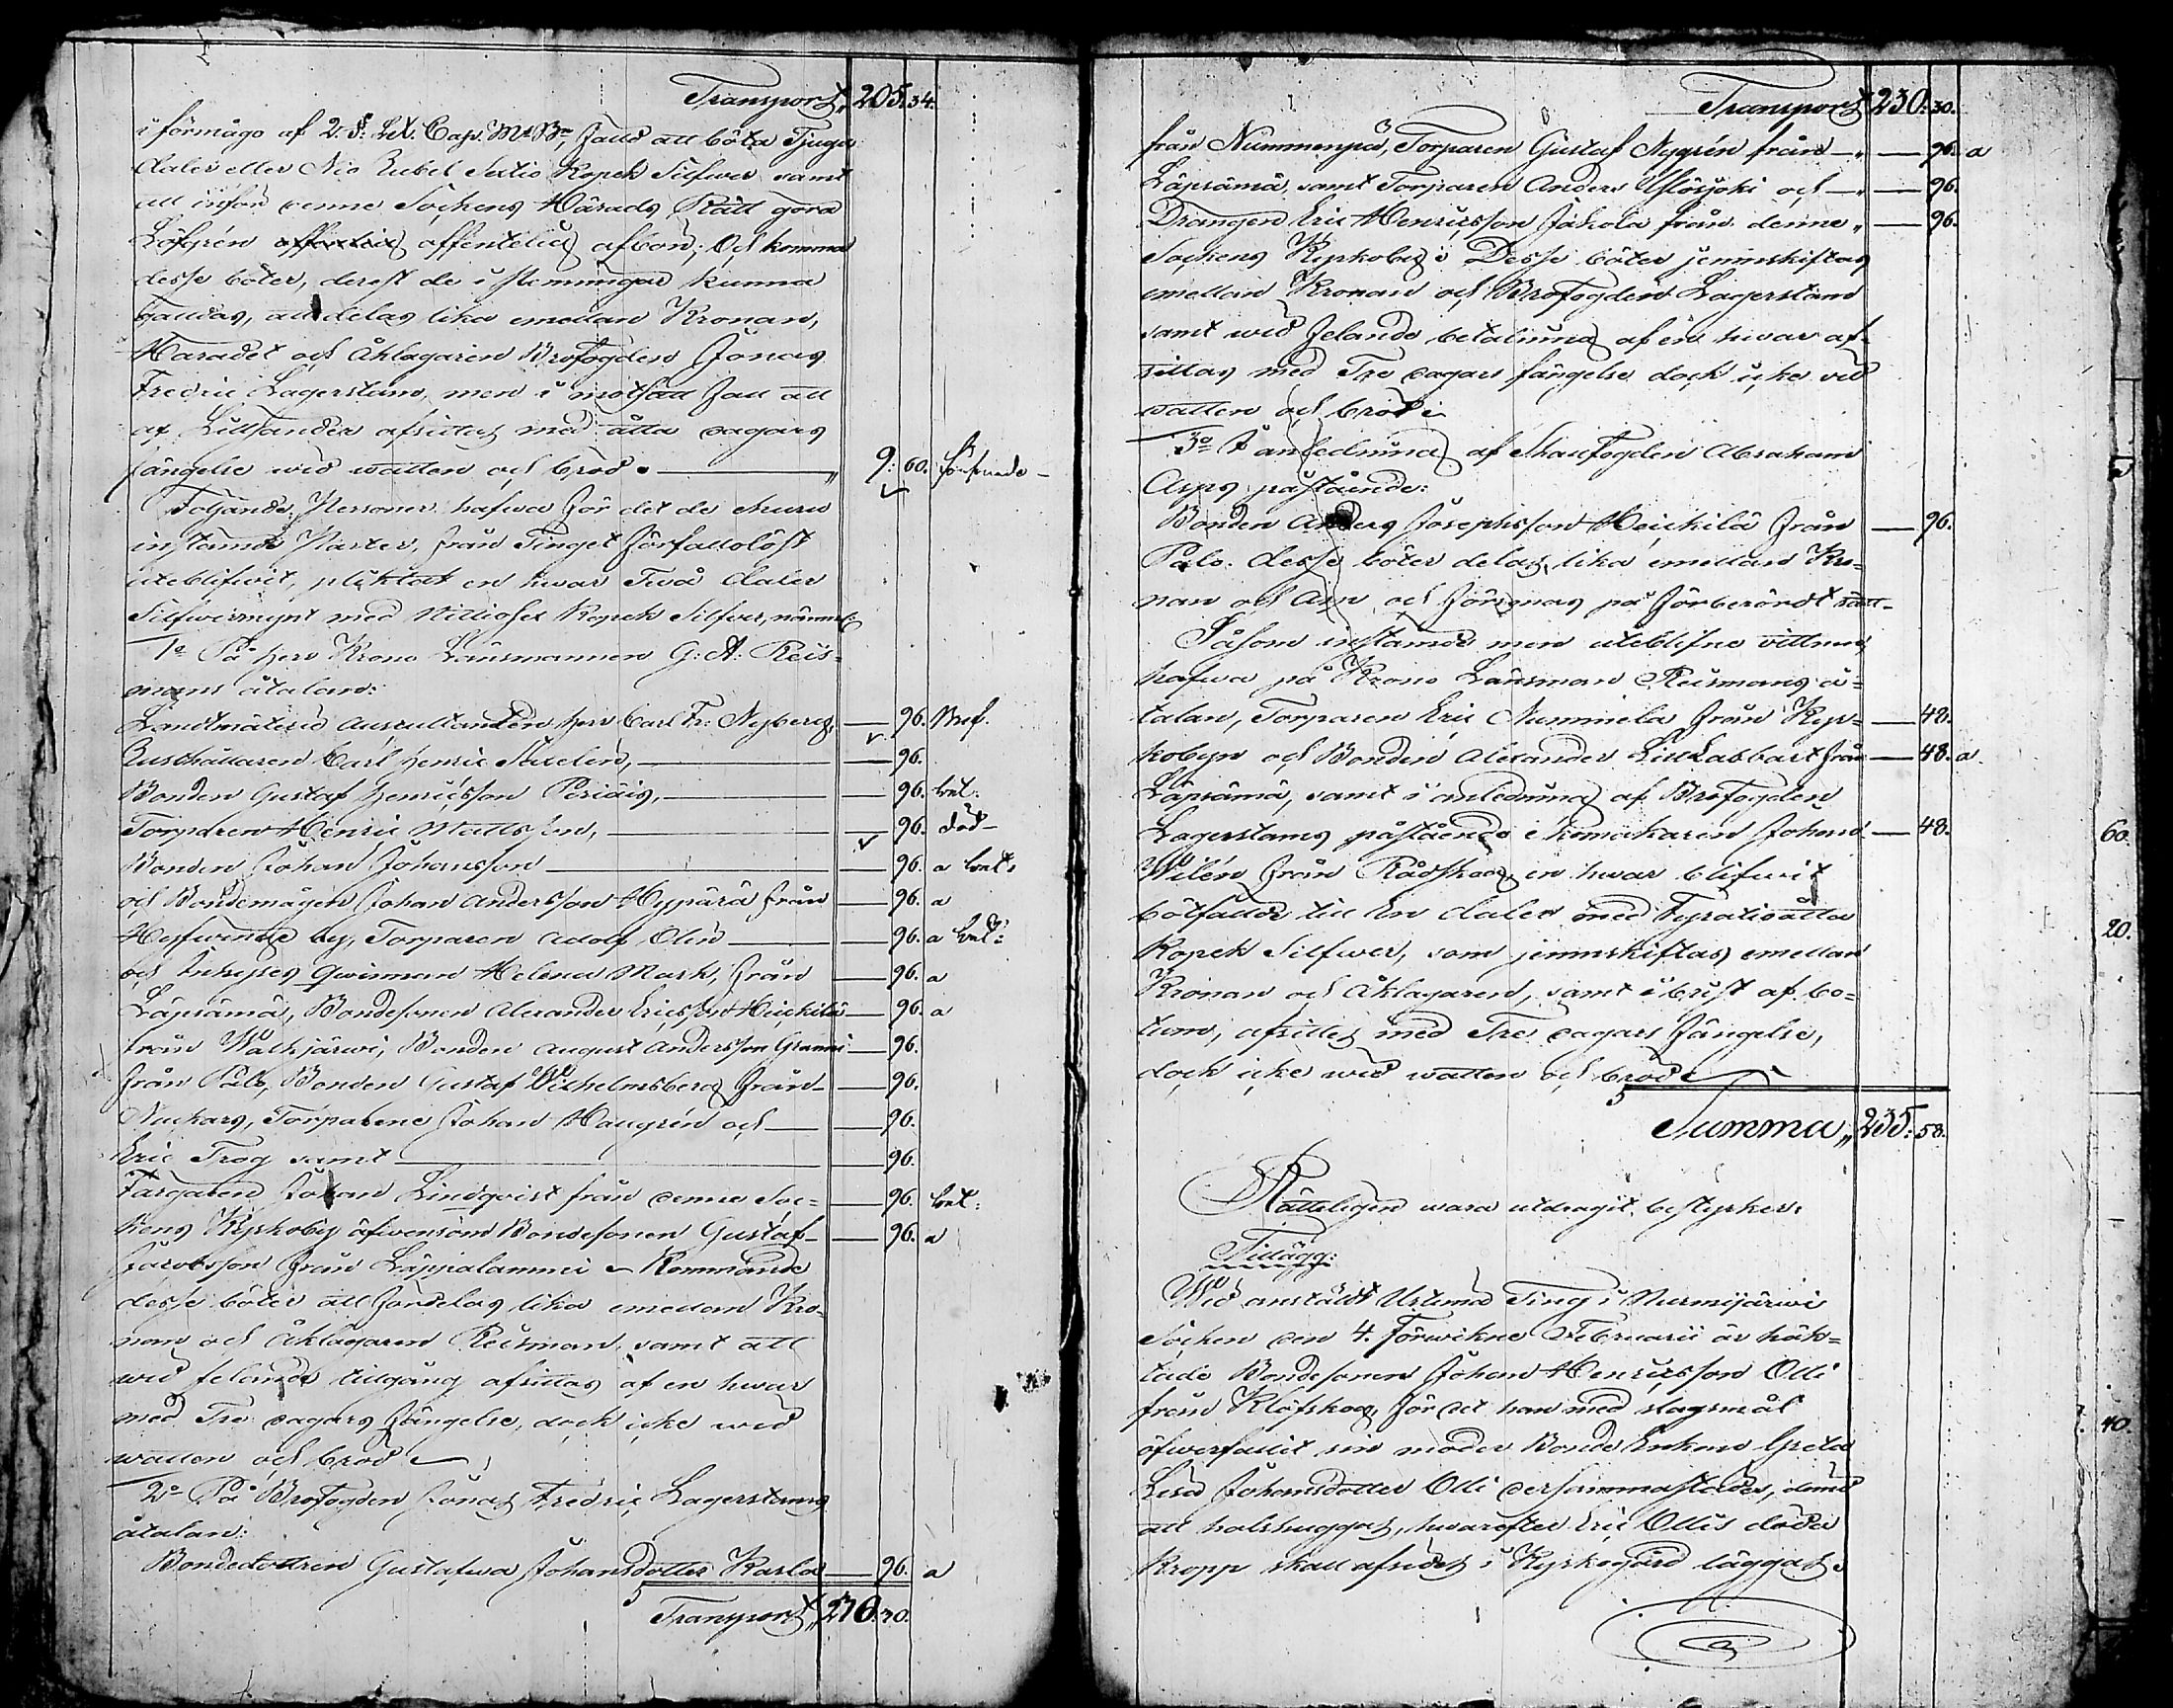 Transport, 205. 34.
i förmågo af 2. §. LX. Cap. M. B., fälld att böta Tjugu
daler eller Nio Rubel Sextio Kopek Silfver samt
att inför denne Sockens Härads Rätt göra
Löfgrén offentelig afbön; Och komma
desse böter, derest de i penningar kunna
gäldas, att delas lika emellan Kronan,
Häradet och Åklagaren Brofogden Jonas
Fredric Lagerstam, men i motsatt fall att
af afsittas med åtta dagars
fängelse wid watten och bröd. „ 9: 60.
Följande Personer hafwa för det de ehuru
instämde Parter, från Tinget förfallolöst
uteblifwit, pliktat en hwar Två daler
Silfwermynt med Nittiosex Kopek Silfver, nämnl:
1o På Herr Krono Länsmannen G: A: Reis=
mans åtalan:
Landtmäterie Auscultanten Herr Carl Fr: Nyberg, 96.
Rusthållaren Carl Henric 96.
Bonden Gustaf Henricsson 96. bet:
Torparen Henric Mattsson, 96. död
Bonden Johan Johansson 96. a bet:
och Bondemågen Johan Andersson Hyppärä från 96. a
by, Torparen Adolf Olin 96. a bet:
och Inhyses Qwinnan Helena Mark, från 96. a
Läpsämä, Bondesonen Alexander Ericsson Heickilä 96. a
från Walkjärwi, Bonden August Andersson 96.
från Palo, Bonden Gustaf Wilhelmsberg från 96.
Nackars, Torparene Johan Haugrén och 96.
Eric Trog samt 96.
Färgaren Johan Lindqvist från denne Soc= 96. bet:
kens Kyrkoby äfwensom Bondesonen Gustaf 96. a
från Läppilammi Kommande
desse böter att fördelas lika emellan Kro=
nan och Åklagaren Reisman, samt att
wid felande tillgång afsittas af en hwar
med Tre dagars fängelse, dock icke wid
watten och bröd
2o På Brofogden Jonas Fredric Lagerstams
åtalan:
Bondedottren Gustafwa Johansdotter Karla 96. a
Transport, 230. 30.
Transport 230: 30.
från Nummenpä, Torparen Gustaf Nygrén från 96. a
Läpsämä, samt Torparen Anders och 96.
Drängen Eric Henricsson Jäkola från denne „ 96.
Sockens Kyrkoby: Desse böter jemnskiftas
emellan Kronan och Brofogden Lagerstam
samt wid felande betalning af en hwar af=
sittas med Tre dagars fängelse dock icke vid
watten och bröd
3o I anledning af Skallfogden Abraham
Asps påstående:
Bonden Anders Josephsson Heickilä från 96.
Palo. desse böter delas lika emellan Kro=
nan och Asp, och försonas på förberördt sätt.
Såsom instämde men uteblifne vittnen
hafwa på Krono Länsman Reismans å=
talan, Torparen Eric Nummela från Kyr= 48.
kobyn och Bonden Alexander Lill Labbart från 48. a.
Läpsämä, samt i anledning af Brofogden
Lagerstams påstående Skomakaren Johan 48.
Wilén från Rådskog, en hwar blifwit
bötfälld till En daler med Fyratioåtta
Kopek Silfwer, som jemnskiftas emellan
Kronan och Åklagaren, samt i brist af bo=
tum, afsittes med Tre dagars fängelse,
dock icke wid watten och bröd
Summa, 235: 58.
Rätteligen wara utdragit, bestyrker:
Tillägg:
Wid anstäldt Urtima Ting i Nurmijärwi
Socken den 4. förwikne Februarii är häk=
tade Bondesonen Johan Henricsson Olli
från Klöfskog, för det han med slagsmål
öfwerfallit sin moder Bonde Enkan Greta
Lisa Johansdotter Olli dersammastädes, dömd
att halshuggas, hwarefter Eric Ollis döda
kropp skall afsides i Kyrkogård läggas.
60.
20.
40.